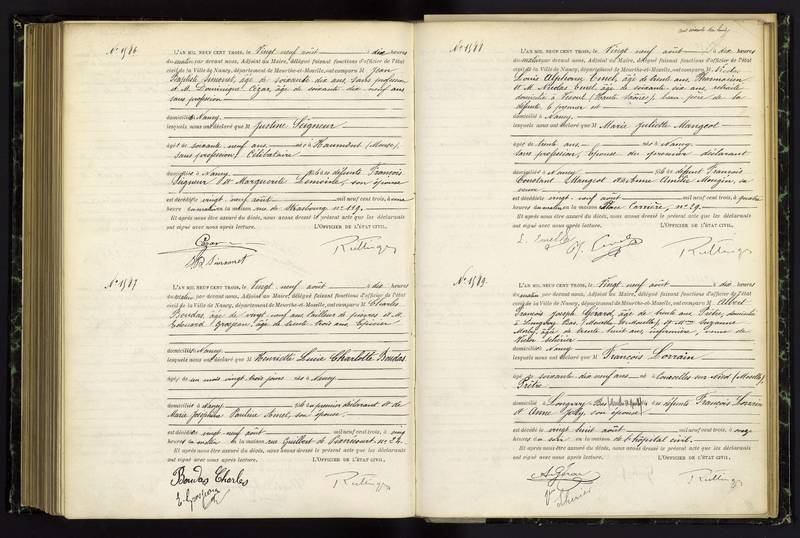 N° 1586
L'AN MIL NEUF CENT TROIS, le Vingt neuf août à dix heures
du matin par devant nous, Adjoint au Maire, délégué faisant fonctions d'officier de l'état
civil de la Ville de Nancy, département de Meurthe-et-Moselle, ont comparu M. Jean
Baptiste Simonet, âgé de soixante dix ans, sans profession
et M. Dominique Cézar, âgé de soixante dix neuf ans
sans profession
domiciliés à Nancy
lesquels nous ont déclaré que M Justine Seigneur
âgée de soixante neuf ans née à Haumont (Meuse)
sans profession, Célibataire
domiciliée à Nancy fille de défunts François
Seigneur et de Marguerite Lemoine, son épouse
est décédée vingt neuf août mil neuf cent trois, à une
heure du matin en la maison rue de Strasbourg n° 119.
Et après nous être assuré du décès, nous avons dressé le présent acte que les déclarants
ont signé avec nous après lecture. L'OFFICIER DE L'ÉTAT CIVIL,
N° 1587
L'AN MIL NEUF CENT TROIS, le Vingt neuf août à dix heures
du matin par devant nous, Adjoint au Maire, délégué faisant fonctions d'officier de l'état
civil de la Ville de Nancy, département de Meurthe-et-Moselle, ont comparu M. Charles
Boudas, âgé de vingt neuf ans tailleur de pierres et M.
Edouard Grosjean, âgé de trente trois ans, Epicier
domiciliés à Nancy
lesquels nous ont déclaré que M Henriette Lucie Charlotte Boudas
âgée de un mois vingt trois jours née à Nancy
domiciliée à Nancy fille du premier déclarant et de
Marie Joséphine Pauline son épouse
est décédée vingt neuf août mil neuf cent trois, à cinq
heures du matin en la maison rue Guilbert de Pixerécourt n° 24.
Et après nous être assuré du décès, nous avons dressé le présent acte que les déclarants
ont signé avec nous après lecture. L'OFFICIER DE L'ÉTAT CIVIL,
Boudas Charles
E. Grosjean
N° 1588
L'AN MIL NEUF CENT TROIS, le Vingt neuf août à dix heures
du matin par devant nous, Adjoint au Maire, délégué faisant fonctions d'officier de l'état
civil de la Ville de Nancy, département de Meurthe-et-Moselle, ont comparu M.
Louis Alphonse âgé de trente ans, Pharmacien
et M. Nicolas âgé de soixante six ans, retraité
domicilié à Vesoul (Haute Saône), beau père de la
défunte, le premier est
domicilié à Nancy
lesquels nous ont déclaré que M Marie Juliette Mangeot
âgée de trente ans née à Nancy
sans profession, épouse du premier déclarant
domiciliée à Nancy fille de défunt François
Constant Mangeot et d'Anne Amélie Mougin, sa
veuve
est décédée vingt neuf août mil neuf cent trois, à quatre
heures du matin en la maison Place Carrière, n° 29.
Et après nous être assuré du décès, nous avons dressé le présent acte que les déclarants
ont signé avec nous après lecture. L'OFFICIER DE L'ÉTAT CIVIL,
N° 1589
L'AN MIL NEUF CENT TROIS, le Vingt neuf août à dix heures
du matin par devant nous, Adjoint au Maire, délégué faisant fonctions d'officier de l'état
civil de la Ville de Nancy, département de Meurthe-et-Moselle, ont comparu M. Albert
François Joseph Girard, âgé de trente ans Prêtre, domicilié
à Longwy Bas, (Meurthe et Moselle), et Mme Suzanne
âgée de trente huit ans, infirmière, veuve de
Victor
domiciliée à Nancy
lesquels nous ont déclaré que M François Lorrain
âgé de soixante dix neuf ans né à Courcelles sur Nied (Moselle),
Prêtre
domicilié à Longwy Bas fils de défunts François Lorrain
et Anne Goby, son épouse
est décédé le vingt huit août mil neuf cent trois, à onze
heures du soir en la maison de l'hôpital civil.
Et après nous être assuré du décès, nous avons dressé le présent acte que les déclarants
ont signé avec nous après lecture. L'OFFICIER DE L'ÉTAT CIVIL,